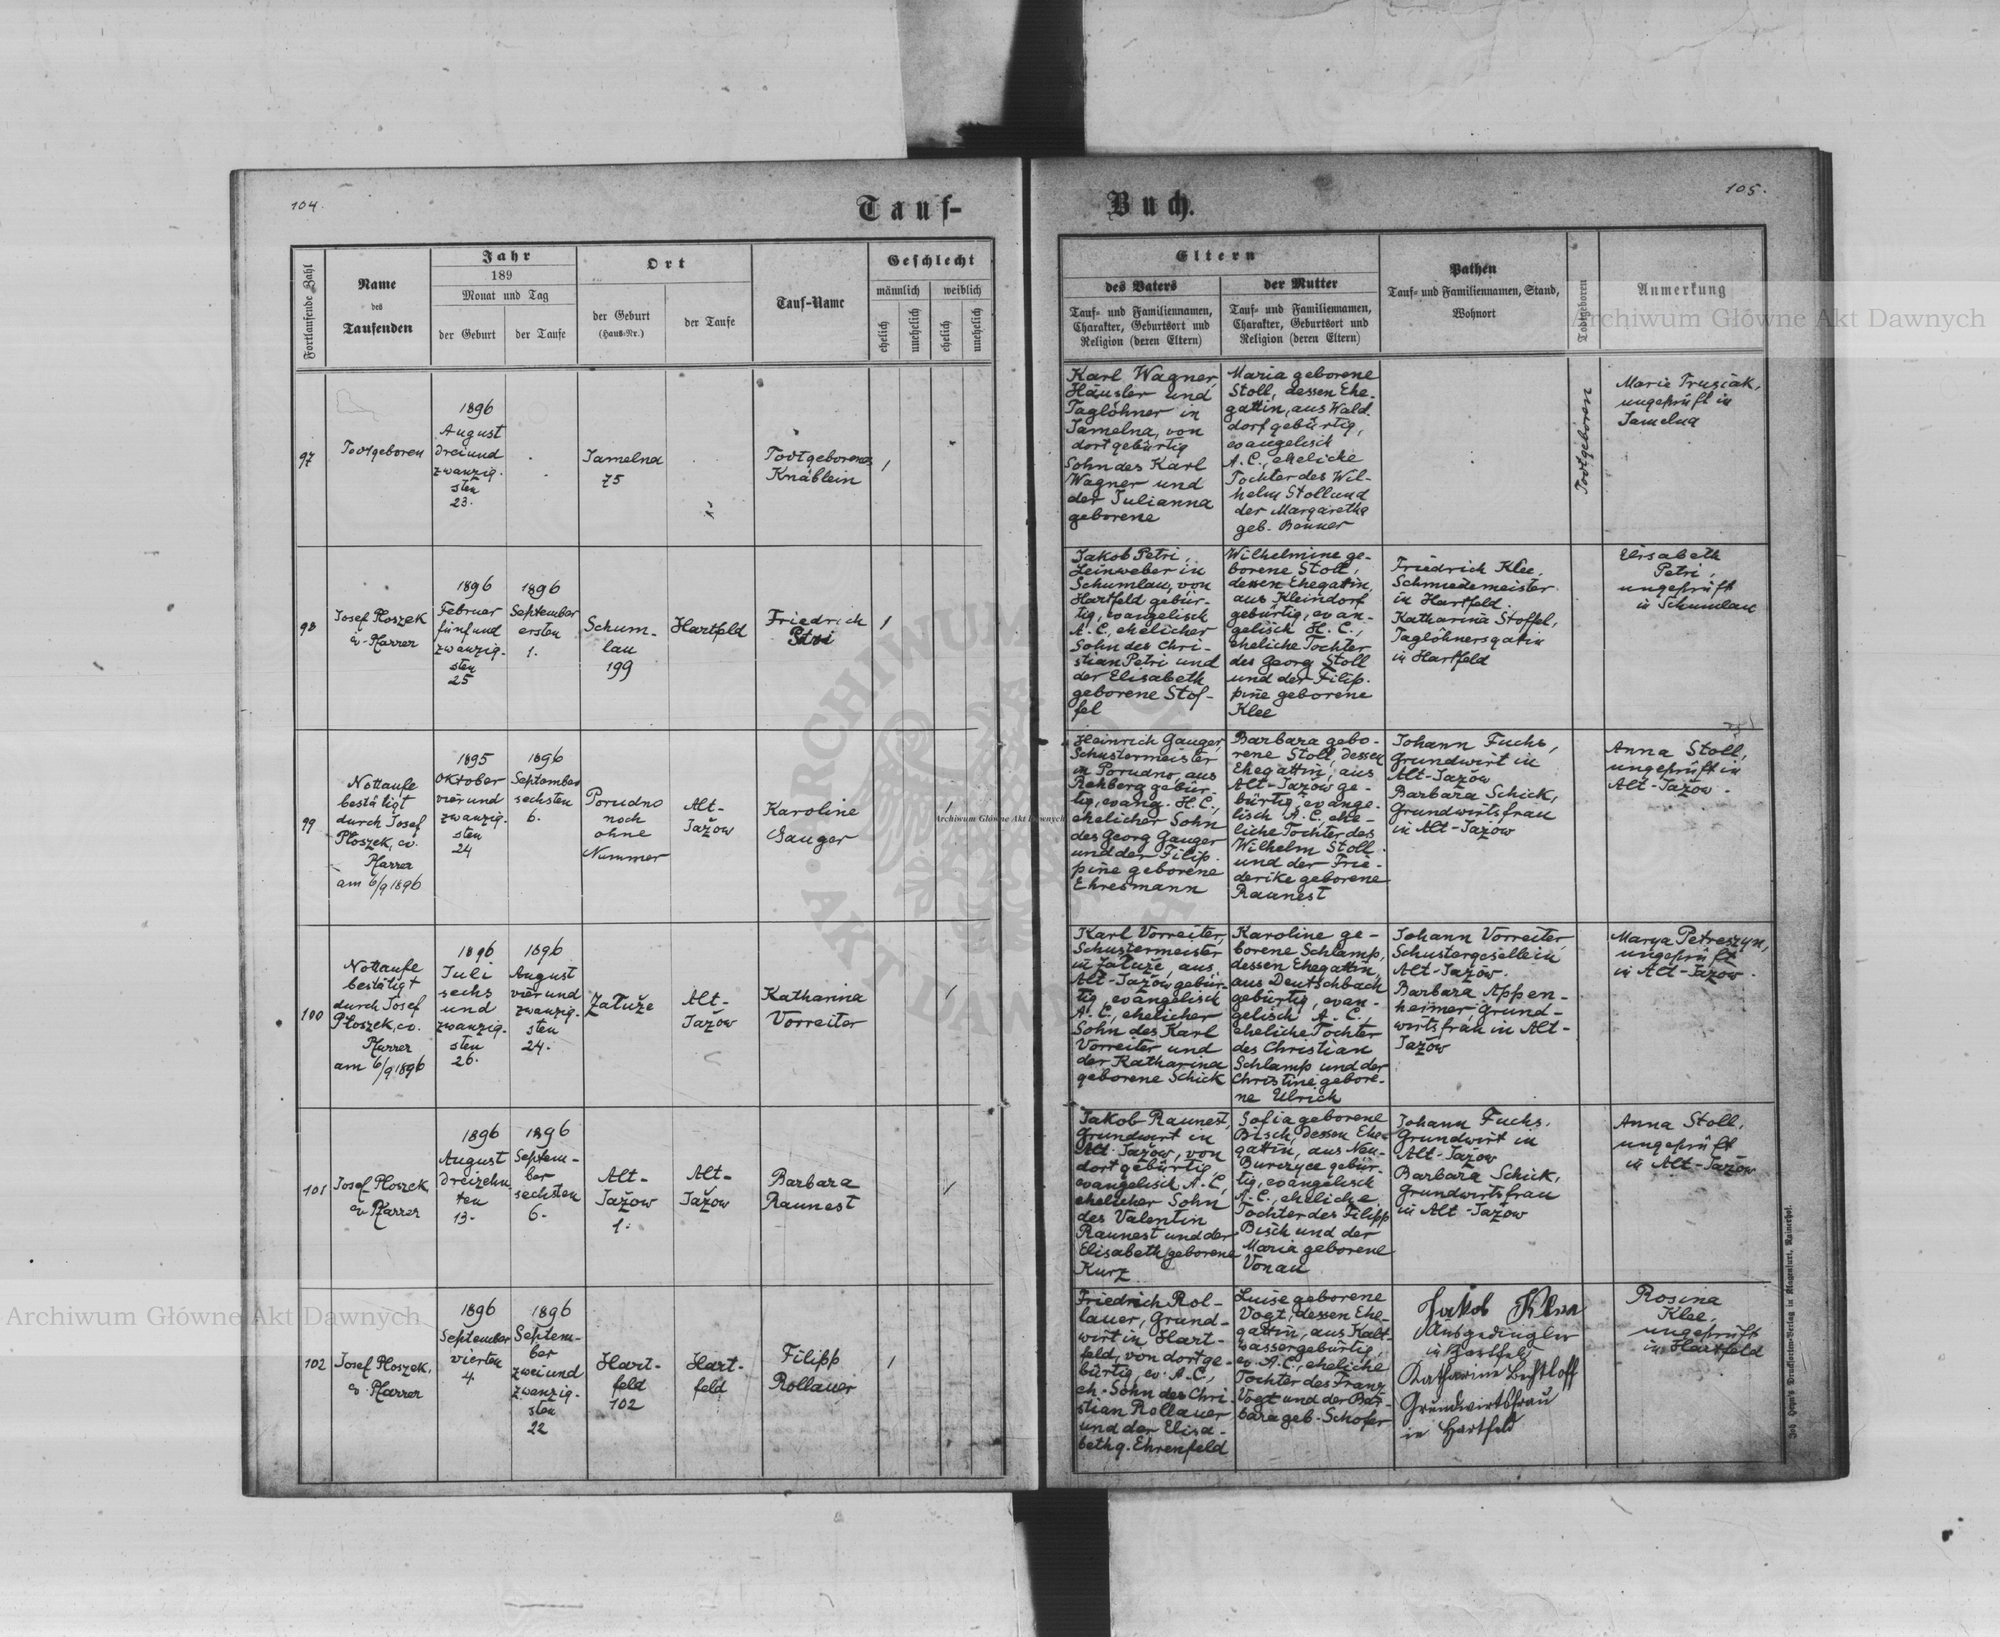 104.
Tauf-
Fortlaufende Zahl
Name
des
Taufenden
Jahr
189
Monat und Tag
der Geburt
der Taufe
Ort
der Geburt
(Haus-Nr.)
der Taufe
Tauf-Name
Geschlecht
männlich
weiblich
ehelich
unehelich
ehelich
unehelich
97
Todtgeboren
1896
August
dreiund
zwanzig-
sten
23.
Jamelna
75
Todtgeborenes
Knäblein
1
98
Josef Ploszek
ev. Pfarrer
1896
Februar
fünfund
zwanzig-
sten
25
1896
September
ersten
1.
Schum-
lau
199
Hartfeld
Friedrich
Petri
1
99
Nottaufe
bestätigt
durch Josef
Płoszek, ev.
Pfarrer
am 6/9 1896
1895
Oktober
vierund
zwanzig-
sten
24
1896
September
sechsten
6.
Porudno
noch
ohne
Nummer
Alt-
Jažow
Karoline
Gauger
1
100
Nottaufe
bestätigt
durch Josef
Płoszek, ev.
Pfarrer
am 6/9 1896
1896
Juli
sechs
und
zwanzig-
sten
26.
1896
August
vierund
zwanzig-
sten
24.
Załuże
Alt-
Jažow
Katharina
Vorreiter
1
101
Josef Ploszek,
ev Pfarrer
1896
August
dreizehn
ten
13.
1896
Septem-
ber
sechsten
6.
Alt-
Jažow
1.
Alt-
Jažow
Barbara
Raunest
1
102
Josef Ploszek,
ev. Pfarrer
1896
September
vierten
4
1896
Septem-
ber
zweiund
zwanzig-
sten
22
Hart-
feld
102
Hart-
feld
Filipp
Rollauer
1
Buch.
105.
Eltern
des Vaters
Tauf- und Familiennamen,
Charakter, Geburtsort und
Religion (deren Eltern)
der Mutter
Tauf- und Familiennamen,
Charakter, Geburtsort und
Religion (deren Eltern)
Pathen
Tauf- und Familiennamen, Stand,
Wohnort
Todtgeboren
Anmerkung
Karl Wagner,
Häusler und
Taglöhner in
Jamelna, von
dort gebürtig
Sohn des Karl
Wagner und
der Julianna
geborene
Maria geborene
Stoll, dessen Ehe-
gattin, aus Wald
dorf gebürtig,
evangelisch
A. C., eheliche
Tochter des Wil-
helm Stoll und
der Margaretha
geb. Bonner
Todtgeboren
Marie Trusiak,
ungeprüft in
Jamelna
Jakob Petri,
Leinweber in
Schumlau, von
Hartfeld gebür-
tig, evangelisch
A. C., ehelicher
Sohn des Chri-
stian Petri und
der Elisabeth
geborene Stof-
fel
Wilhelmine ge-
borene Stoll,
dessen Ehegattin,
aus Kleindorf
gebürtig, evan-
gelisch H. C.,
eheliche Tochter
des Georg Stoll
und der Filip-
pine geborene
Klee
Friedrich Klee,
Schmiedemeister
in Hartfeld.
Katharina Stoffel,
Taglöhnersgatin
in Hartfeld
Elisabeth
Petri,
ungeprüft
in Schumlau
Heinrich Gauger,
Schustermeister
in Porudno, aus
Rehberg gebür-
tig, evang. H. C.,
ehelicher Sohn
des Georg Gauger
und der Filip-
pine geborene
Ehresmann
Barbara gebo-
rene Stoll, dessen
Ehegattin, aus
Alt-Jažow ge-
bürtig, evange-
lisch A. C. ehe-
liche Tochter des
Wilhelm Stoll
und der Frie-
derike geborene
Raunest
Johann Fuchs,
Grundwirt in
Alt-Jažow
Barbara Schick,
Grundwirtsfrau
in Alt-Jažow
Anna Stoll,
ungeprüft in
Alt-Jažow.
Karl Vorreiter,
Schustermeister
in Załuże, aus
Alt-Jažow gebür-
tig, evangelisch
A. C., ehelicher
Sohn des Karl
Vorreiter und
der Katharina
geborene Schick
Karoline ge-
borene Schlamp,
dessen Ehegattin,
aus Deutschbach
gebürtig, evan-
gelisch A. C.,
eheliche Tochter
des Christian
Schlamp und der
Christine gebore-
ne Ulrich
Johann Vorreiter
Schustergeselle in
Alt-Jažow.
Barbara Appen-
heimer, Grund-
wirtsfrau in Alt-
Jažow
Marya Petreszyn,
ungeprüft
in Alt-Jažow.
Jakob Raunest,
Grundwirt in
Alt-Jažow, von
dort gebürtig,
evangelisch A. C.,
ehelicher Sohn
des Valentin
Raunest und der
Elisabeth geborene
Kurz
Sofia geborene
Bisch, dessen Ehe-
gattin, aus Neu-
Burczyce gebür-
tig, evangelisch
A. C., eheliche
Tochter des Filipp
Bisch und der
Maria geborene
Vonau
Johann Fuchs,
Grundwirt in
Alt-Jažow
Barbara Schick,
Grundwirtsfrau
in Alt-Jažow
Anna Stoll,
ungeprüft
in Alt-Jažow
Friedrich Rol-
lauer, Grund-
wirt in Hart-
feld, von dort ge-
bürtig, ev. A. C.,
eh. Sohn des Chri
stian Rollauer
und der Elisa-
beth g. Ehrenfeld
Luise geborene
Vogt, dessen Ehe-
gattin, aus Kalt-
wasser gebürtig,
ev. A. C., eheliche
Tochter des Franz
Vogt und der Bar-
bara geb. Schofer
Jakob
Ausgedingler
in Hartfeld
Katharina Bechtloff
Grundwirtsfrau
in Hartfeld
Rosina
Klee,
ungeprüft
in Hartfeld
Archiwum Główne Akt Dawnych
Archiwum Główne Akt Dawnych
Archiwum Główne Akt Dawnych